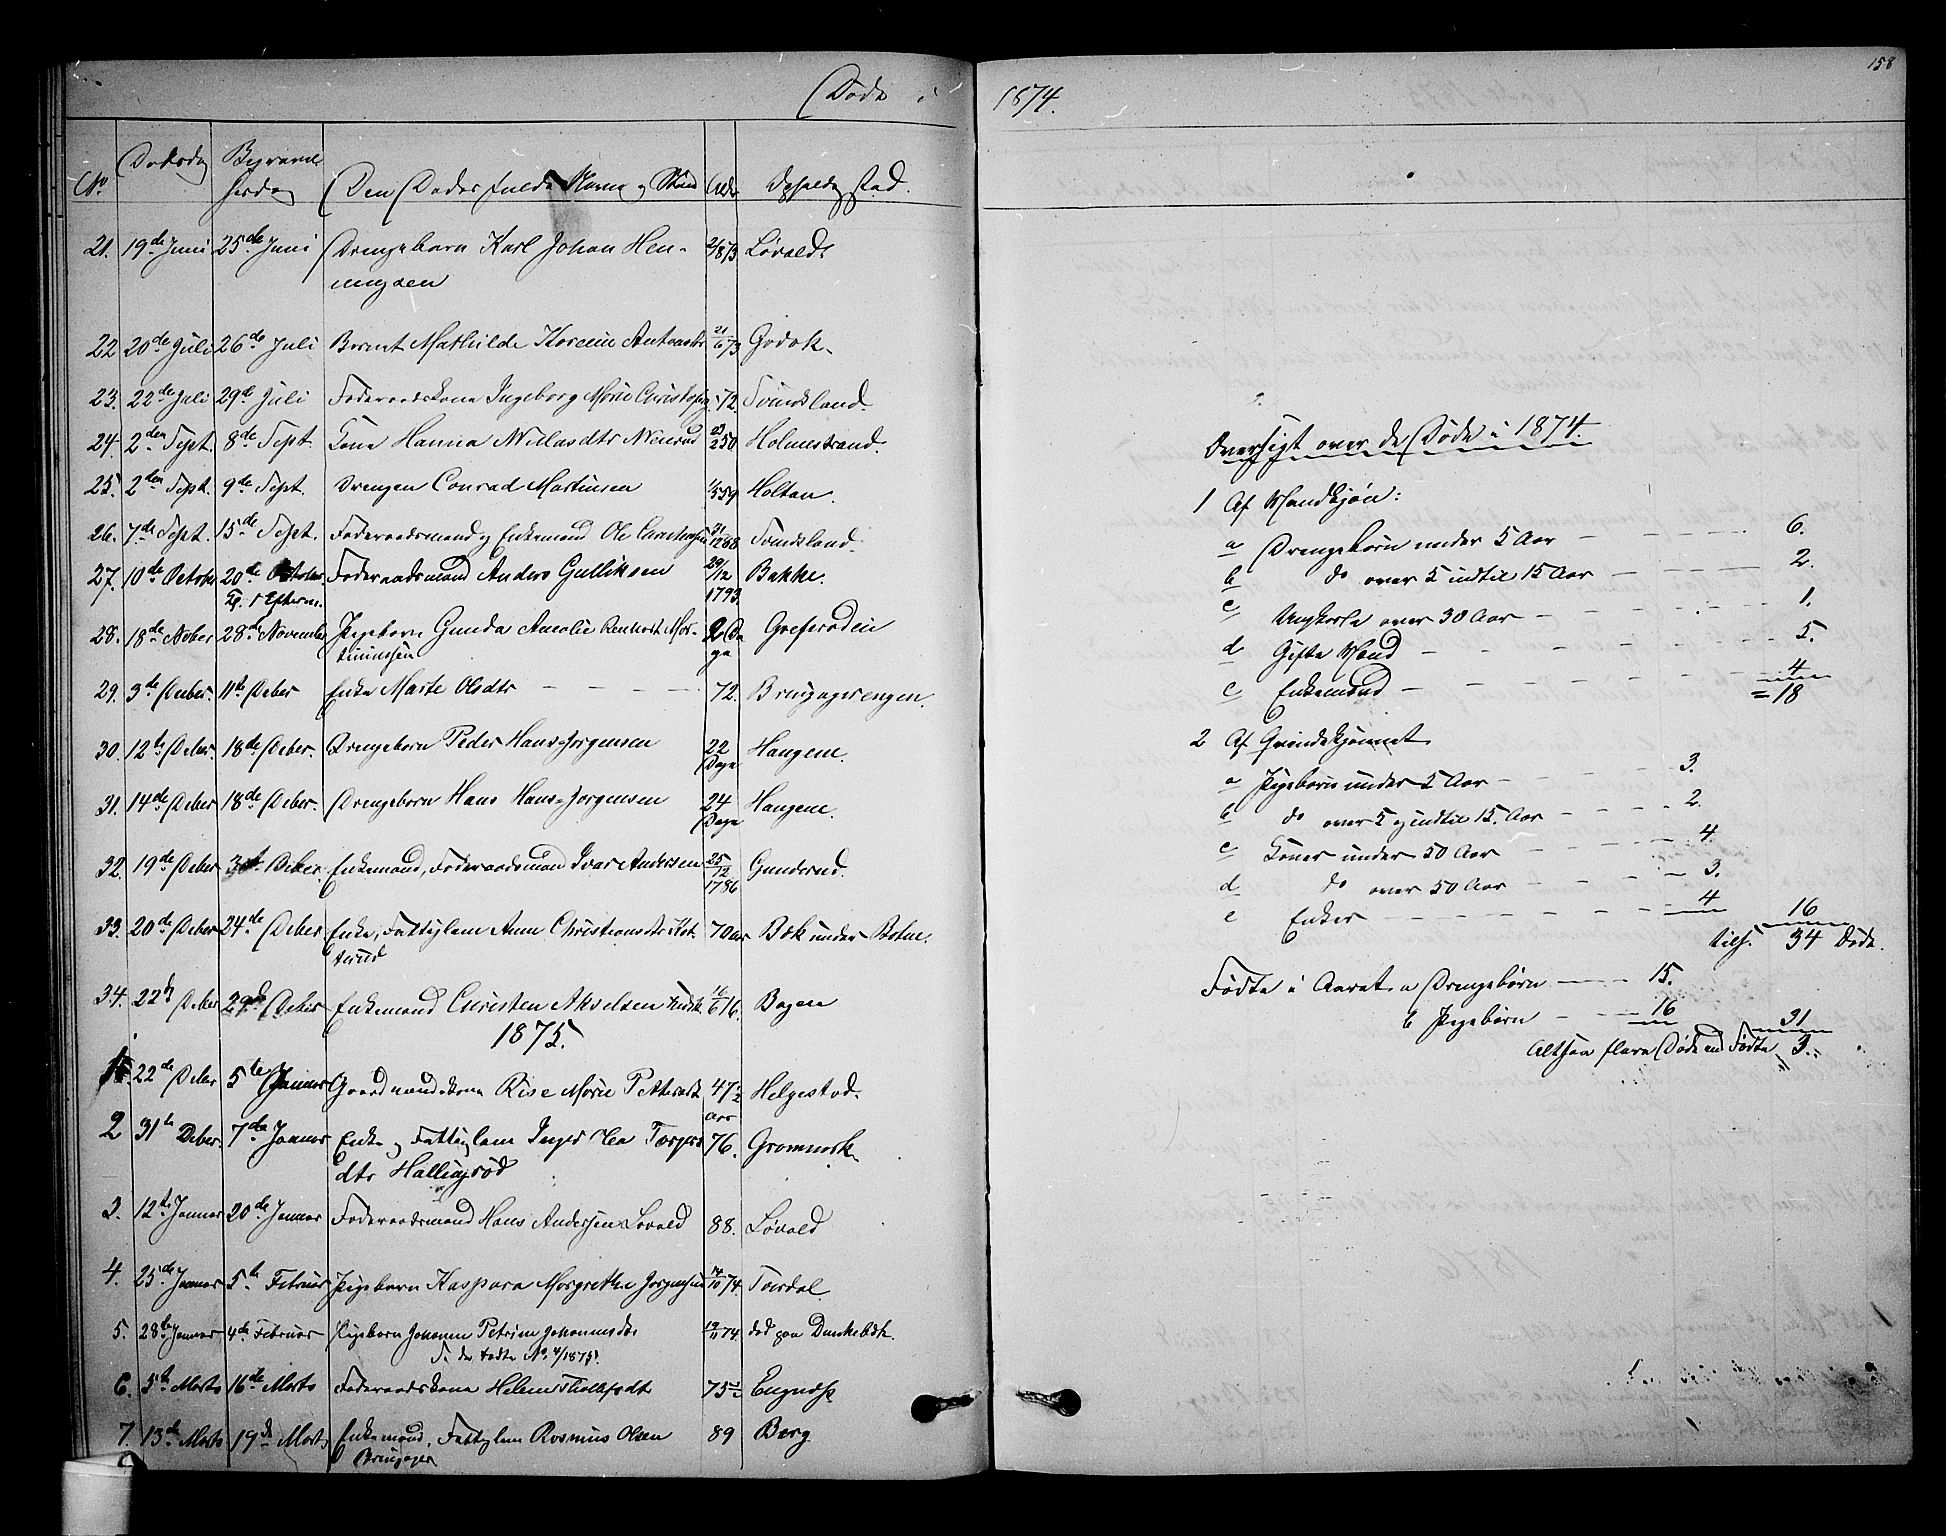 Døde i 1874.
158
No Dødsdag Begravelsesdag Den Dødes fulde Navn og Stand Alder Opholdssted.
21. 19de Juni 25de Juni Drengebarn Karl Johan Hen-
ningsen 2/873 Løvald
22 20de Juli 26de Juli Bernt Mathilde 21/6 73
23. 22de Juli 29de Juli Føderaadskone Ingeborg Marie 72. Svindsland.
24. 2den Sept. 8de Sept. Kone Hanna Nielsdtr 50 Holmestrand.
25. 2den Sept. 9de Sept. Drengen Conrad Martinsen 59 Holtan.
26. 7de Sept. 15de Sept. Føderaadsmand og Enkemand Ole 88 Svindsland.
27. 10de October 20de October Føderaadsmand Anders Gulliksen 29/12 1793. Bakke.
28. 18de Nober 28de November Pigebarn Gunda Amalie Mar-
tinussen 2 Da
ge Grefsrødeie
29. 3de Deber. 11te Deber Enke Marte Olsdtr - - - - 72.
30. 12te Deber. 18de Deber. Drengebarn Peder Hans-Jørgensen 22
Dage Haugene.
31. 14de Deber 18de Deber. Drengebarn Hans Hans-Jørgensen 24
Dage Haugene.
32. 19de Deber Deber. Enkemand, Føderaadsmand Ivar Andersen 25/12 1786 Gunderud.
33. 20de Deber 24de Deber Enke, Fattiglem Anne Christiansdtr 70 aar Bæk under Botne.
34. 22de Deber 29de Deber Enkemand Christen Akselsen 16/6 16. Bogen
1875.
1 22de Deber 5te Januar Gaardmandskone Marie 47½
Aar Helgestad.
2 31te Deber. 7de Januar Enke og Fattiglem Inger Torgers
dtr Hallingsrød 76.
3. 12te Januar 20de Januar Føderaadsmand Hans Andersen Løvald 88. Løvald
4. 25de Januar 5te Februar Pigebarn Kaspara Margrethe Jørgensen 14/10 74.
5. 28de Januar 4de Februar Pigebarn Johanne Petrine Johannesdtr 19/11 74. død paa
F. de fødte No. 4/1875.
6. 5te Marts 16de Marts Føderaadskone Helene 75½
7. 13de Marts 19de Marts Enkemand, Fattiglem Rasmus Olsen 89 Berg
1874.
Oversigt over de Døde i 1874.
1 Af Mandkjøn:
a Drengebørn under 5 Aar - - - - 6.
b do over 5 indtil 15 Aar - - - - 2.
c Ungkarle over 30 Aar - - - - 1.
d Gifte Mænd - - - - 5.
e Enkemænd - - - - 4
= 18
2 Af Qvindekjønnet
a Pigebørn under 5 Aar - - - - 3.
b do over 5 og indtil 15. Aar - - - - 2.
c Koner under 50 Aar - - - - 4.
d do over 50 Aar - - - - 3.
e Enker - - - - 4 16
tils. 34 Døde.
Fødte i Aaret a Drengebørn - - - 15.
b Pigebørn - - - 16 31
Altsaa flere Døde end Fødte 3.